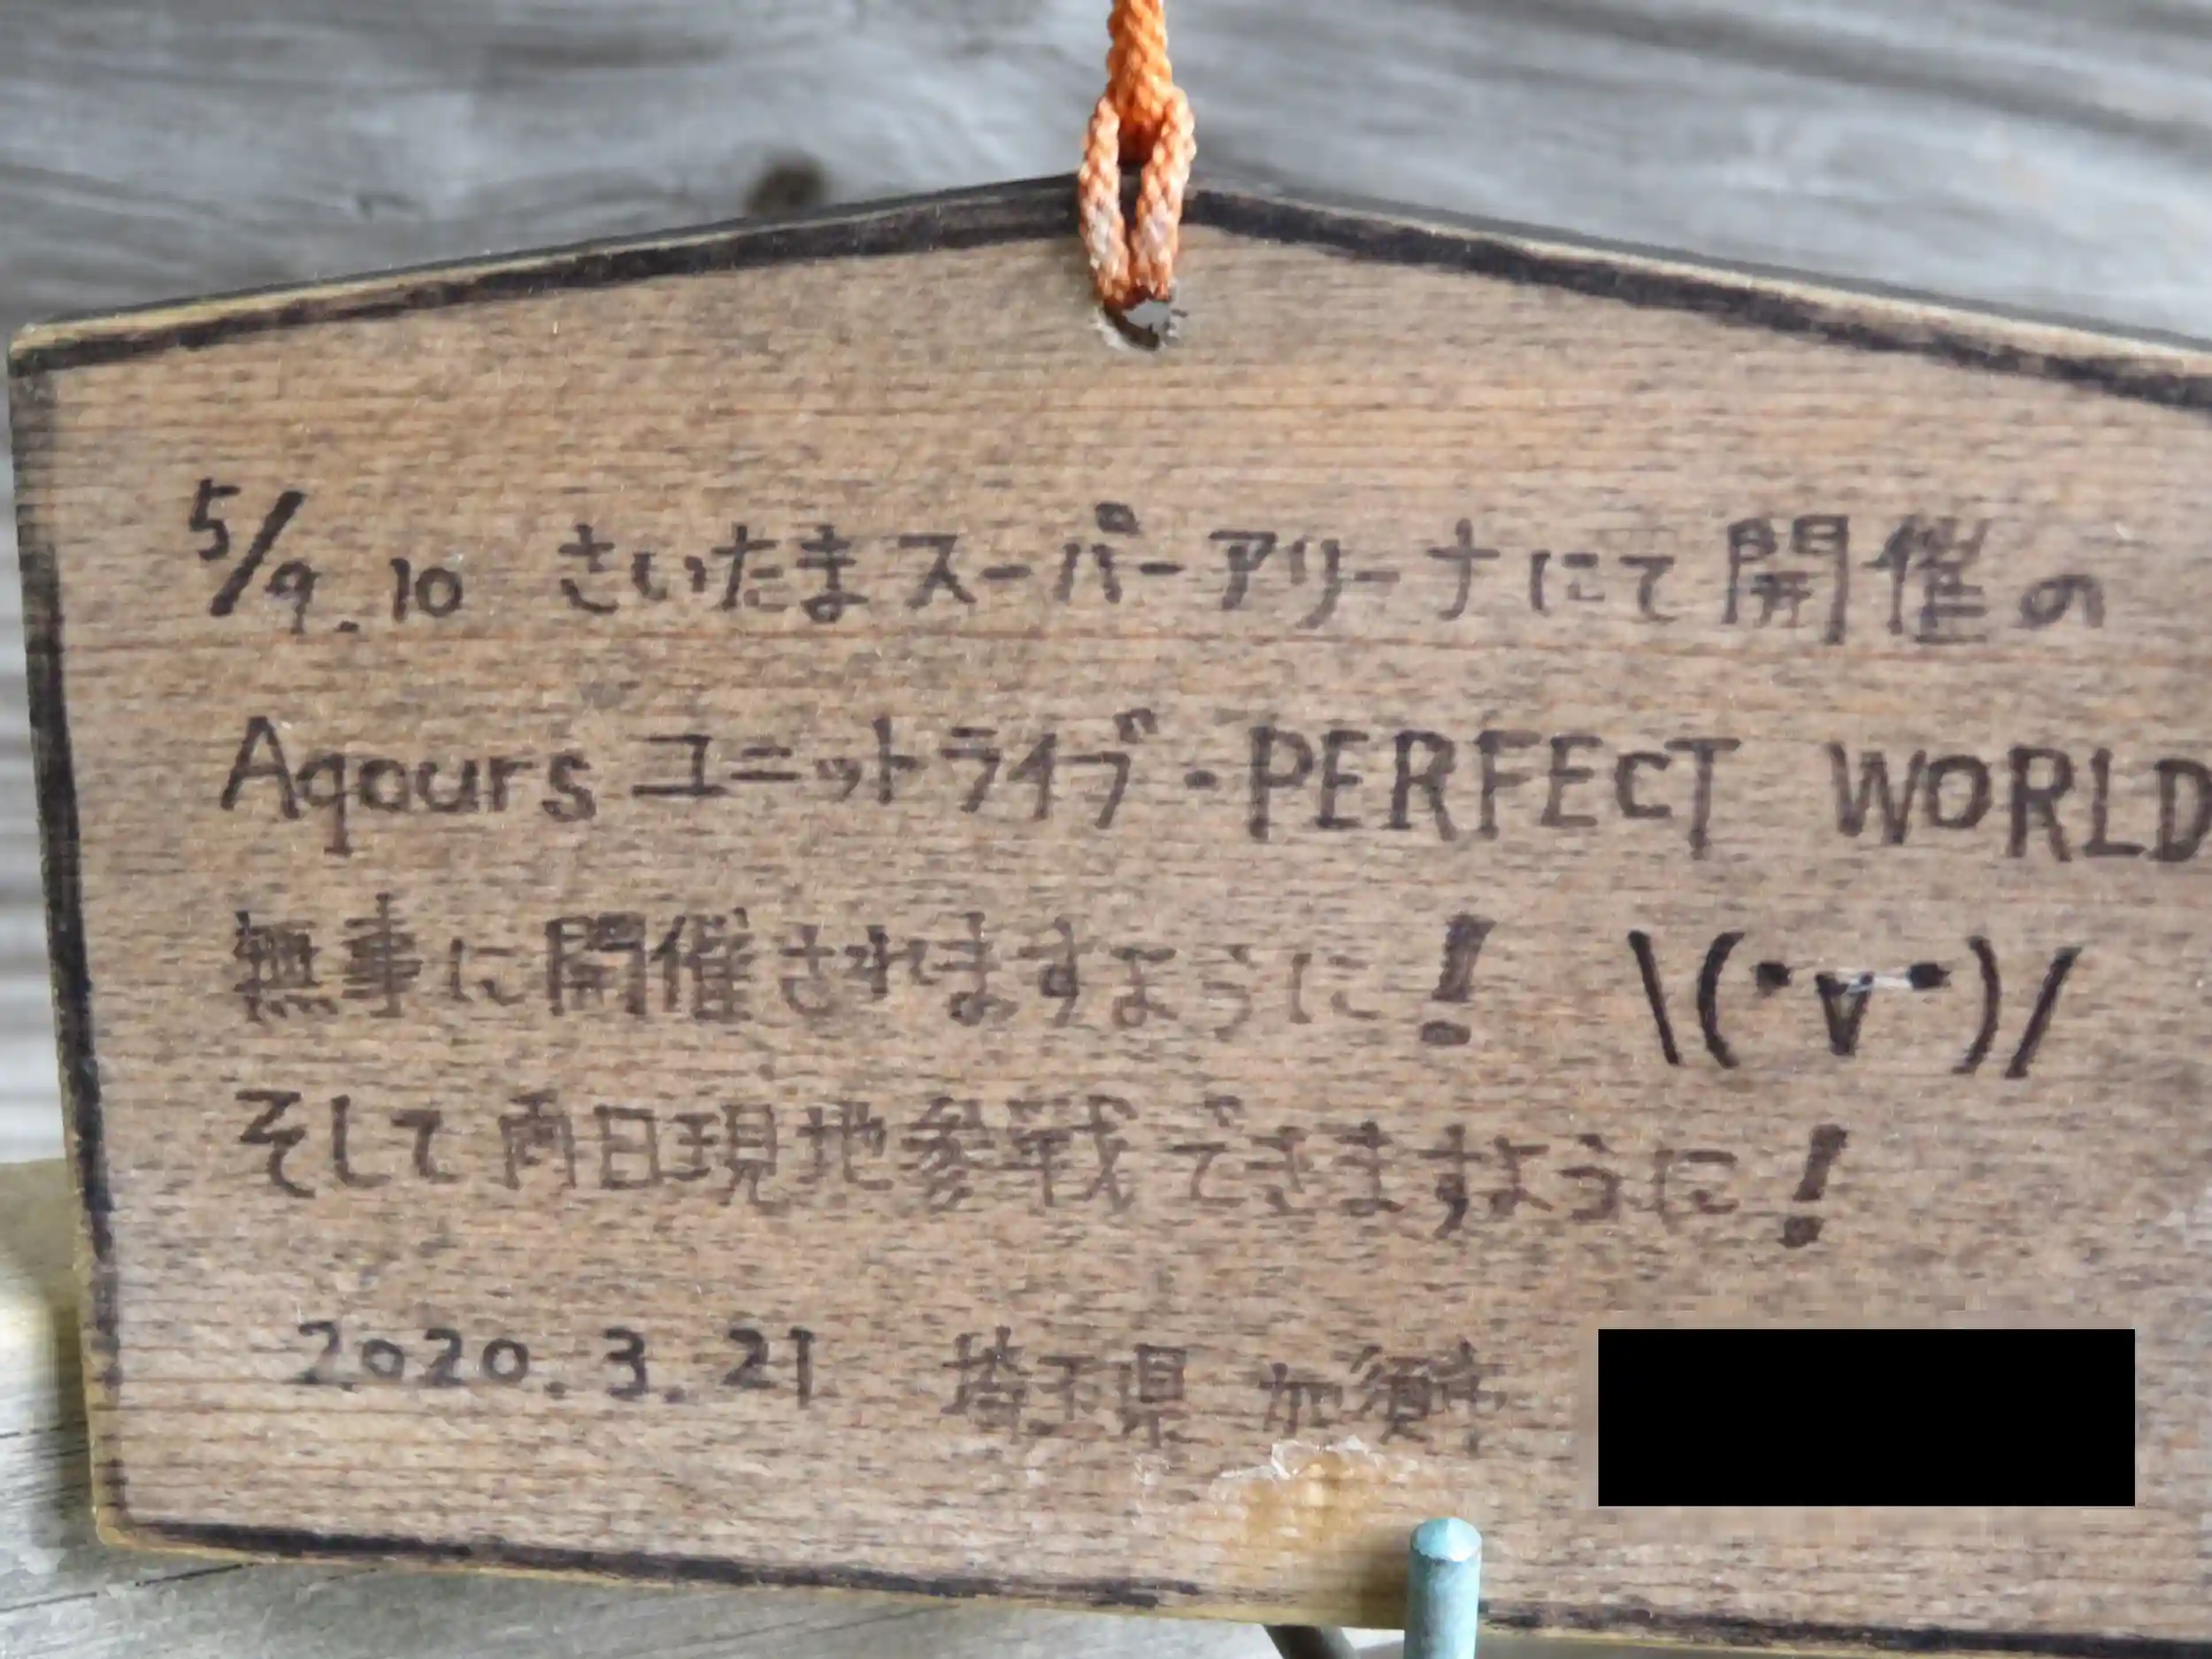 5/9.10 さいたまスーパーアリーナにて開催の
Aqours ユニットライブ・PERFECT WORLD
無事に開催されますように! \(•∀•)/
そして両日現地参戦できますように!
2020.3.21 埼玉県 加須市